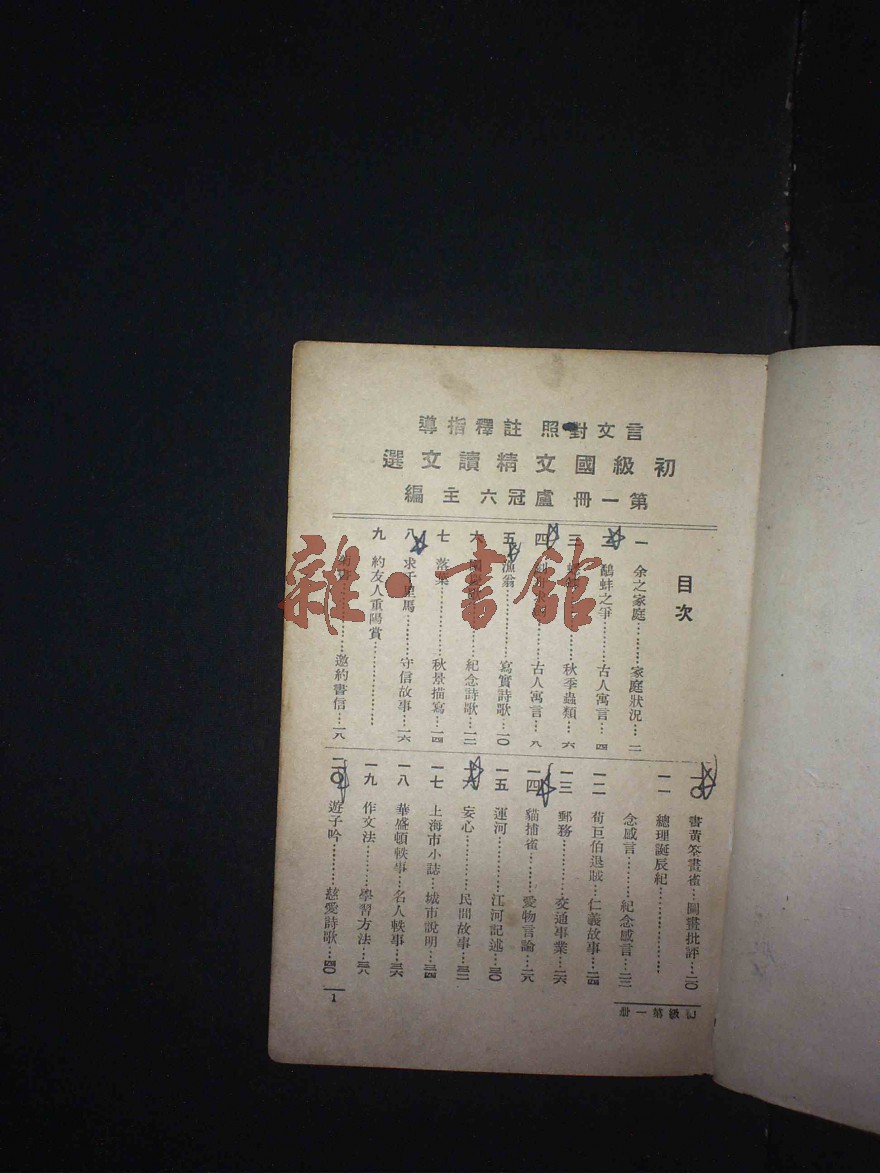 言文對照 註釋指導
初級國文精讀文選
第一冊 盧冠六主編
目次
一 余之家庭………家庭狀況…二
二 鷸蚌之爭………古人寓言…四
三 ………秋季蟲類…六
四 ………古人寓言…八
五 漁翁………寫實詩歌…一〇
六 ………紀念詩歌…一二
七 落葉………秋景描寫…一四
八 求千里馬………守信故事…一六
九 約友人重陽賞
………邀約書信…一八
一〇 書黃筌畫雀…圖畫批評…二〇
一一 總理誕辰紀
念感言………紀念感言…二二
一二 荀巨伯退賊…仁義故事…二四
一三 郵務………交通事業…二六
一四 貓捕雀………愛物言論…二八
一五 運河………江河記述…三〇
一六 妄心………民間故事…三二
一七 上海市小誌…城市說明…三四
一八 華盛頓軼事…名人軼事…三六
一九 作文法………學習方法…三八
二〇 遊子吟………慈愛詩歌…四〇
級第一冊
1
雜·書館